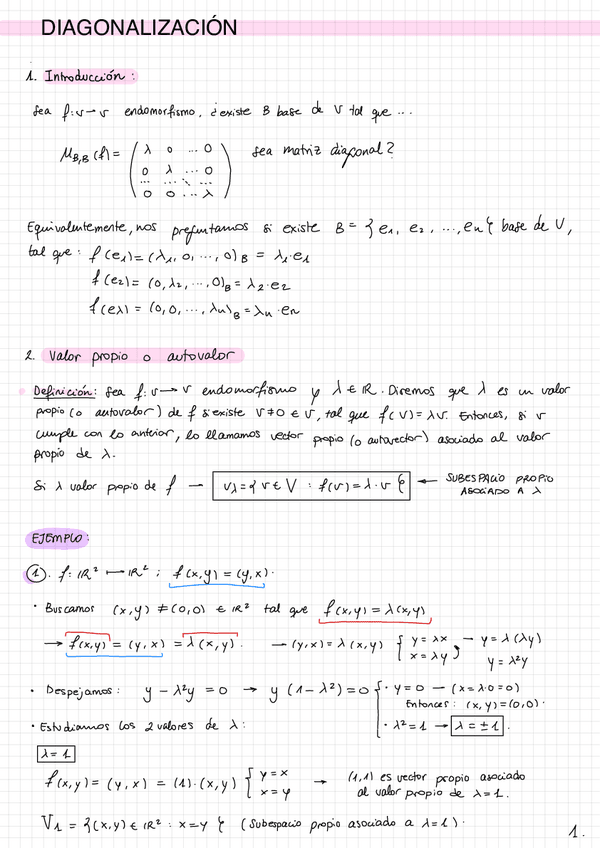 DIAGONALIZACIÓN
1. Introducción:
Sea f: V → V endomorfismo, ¿existe B base de V tal que ...
M_B,B (f) = ( λ 0 ... 0
0 λ ... 0
... ... ⋱ ...
0 0 ... λ ) sea matriz diagonal?
Equivalentemente, nos preguntamos si existe B = {e1, e2, ..., en} base de V,
tal que: f(e1) = (λ1, 0, ..., 0)B = λ1·e1
f(e2) = (0, λ2, ..., 0)B = λ2·e2
f(eλ) = (0, 0, ..., λn)B = λn·en
2. Valor propio o autovalor
Definición: Sea f: V → V endomorfismo y λ ∈ ℝ. Diremos que λ es un valor
propio (o autovalor) de f si existe V ≠ 0 ∈ V, tal que f(V) = λV. Entonces, si V
cumple con lo anterior, lo llamamos vector propio (o autovector) asociado al valor
propio de λ.
Si λ valor propio de f → Vλ = {V ∈ V : f(V) = λ·V} ← SUBESPACIO PROPIO
ASOCIADO A λ
EJEMPLO:
①. f: ℝ² ⟼ ℝ² ; f(x,y) = (y,x).
· Buscamos (x,y) ≠ (0,0) ∈ ℝ² tal que f(x,y) = λ(x,y)
→ f(x,y) = (y,x) = λ(x,y). → (y,x) = λ(x,y) { y = λx → y = λ(λy)
x = λy y = λ²y
· Despejamos: y - λ²y = 0 → y(1-λ²) = 0 { · y = 0 — (x = λ·0 = 0)
Entonces: (x,y) = (0,0).
· Estudiamos los 2 valores de λ: · λ² = 1 → λ = ±1.
λ = 1
f(x,y) = (y,x) = (1)·(x,y) { y = x → (1,1) es vector propio asociado
x = y al valor propio de λ = 1.
V1 = {(x,y) ∈ ℝ² : x = y} (Subespacio propio asociado a λ = 1).
1.